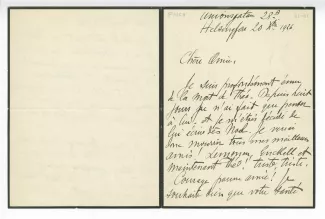 Unionsgatan 28
Helsingfors 20 Xbre 1926
Chère Amie,
Je suis profondément émue
de la mort de Théo. Depuis huit
jours je n'ai fait que penser
à lui et je m'étais décidé de
lui écrire Noël. Je vois
mourir tous mes meilleurs
amis! Lemmen, Enckell et
maintenant Théo! triste, triste.
Courage pauvre amie! Je
souhaite bien que votre santé